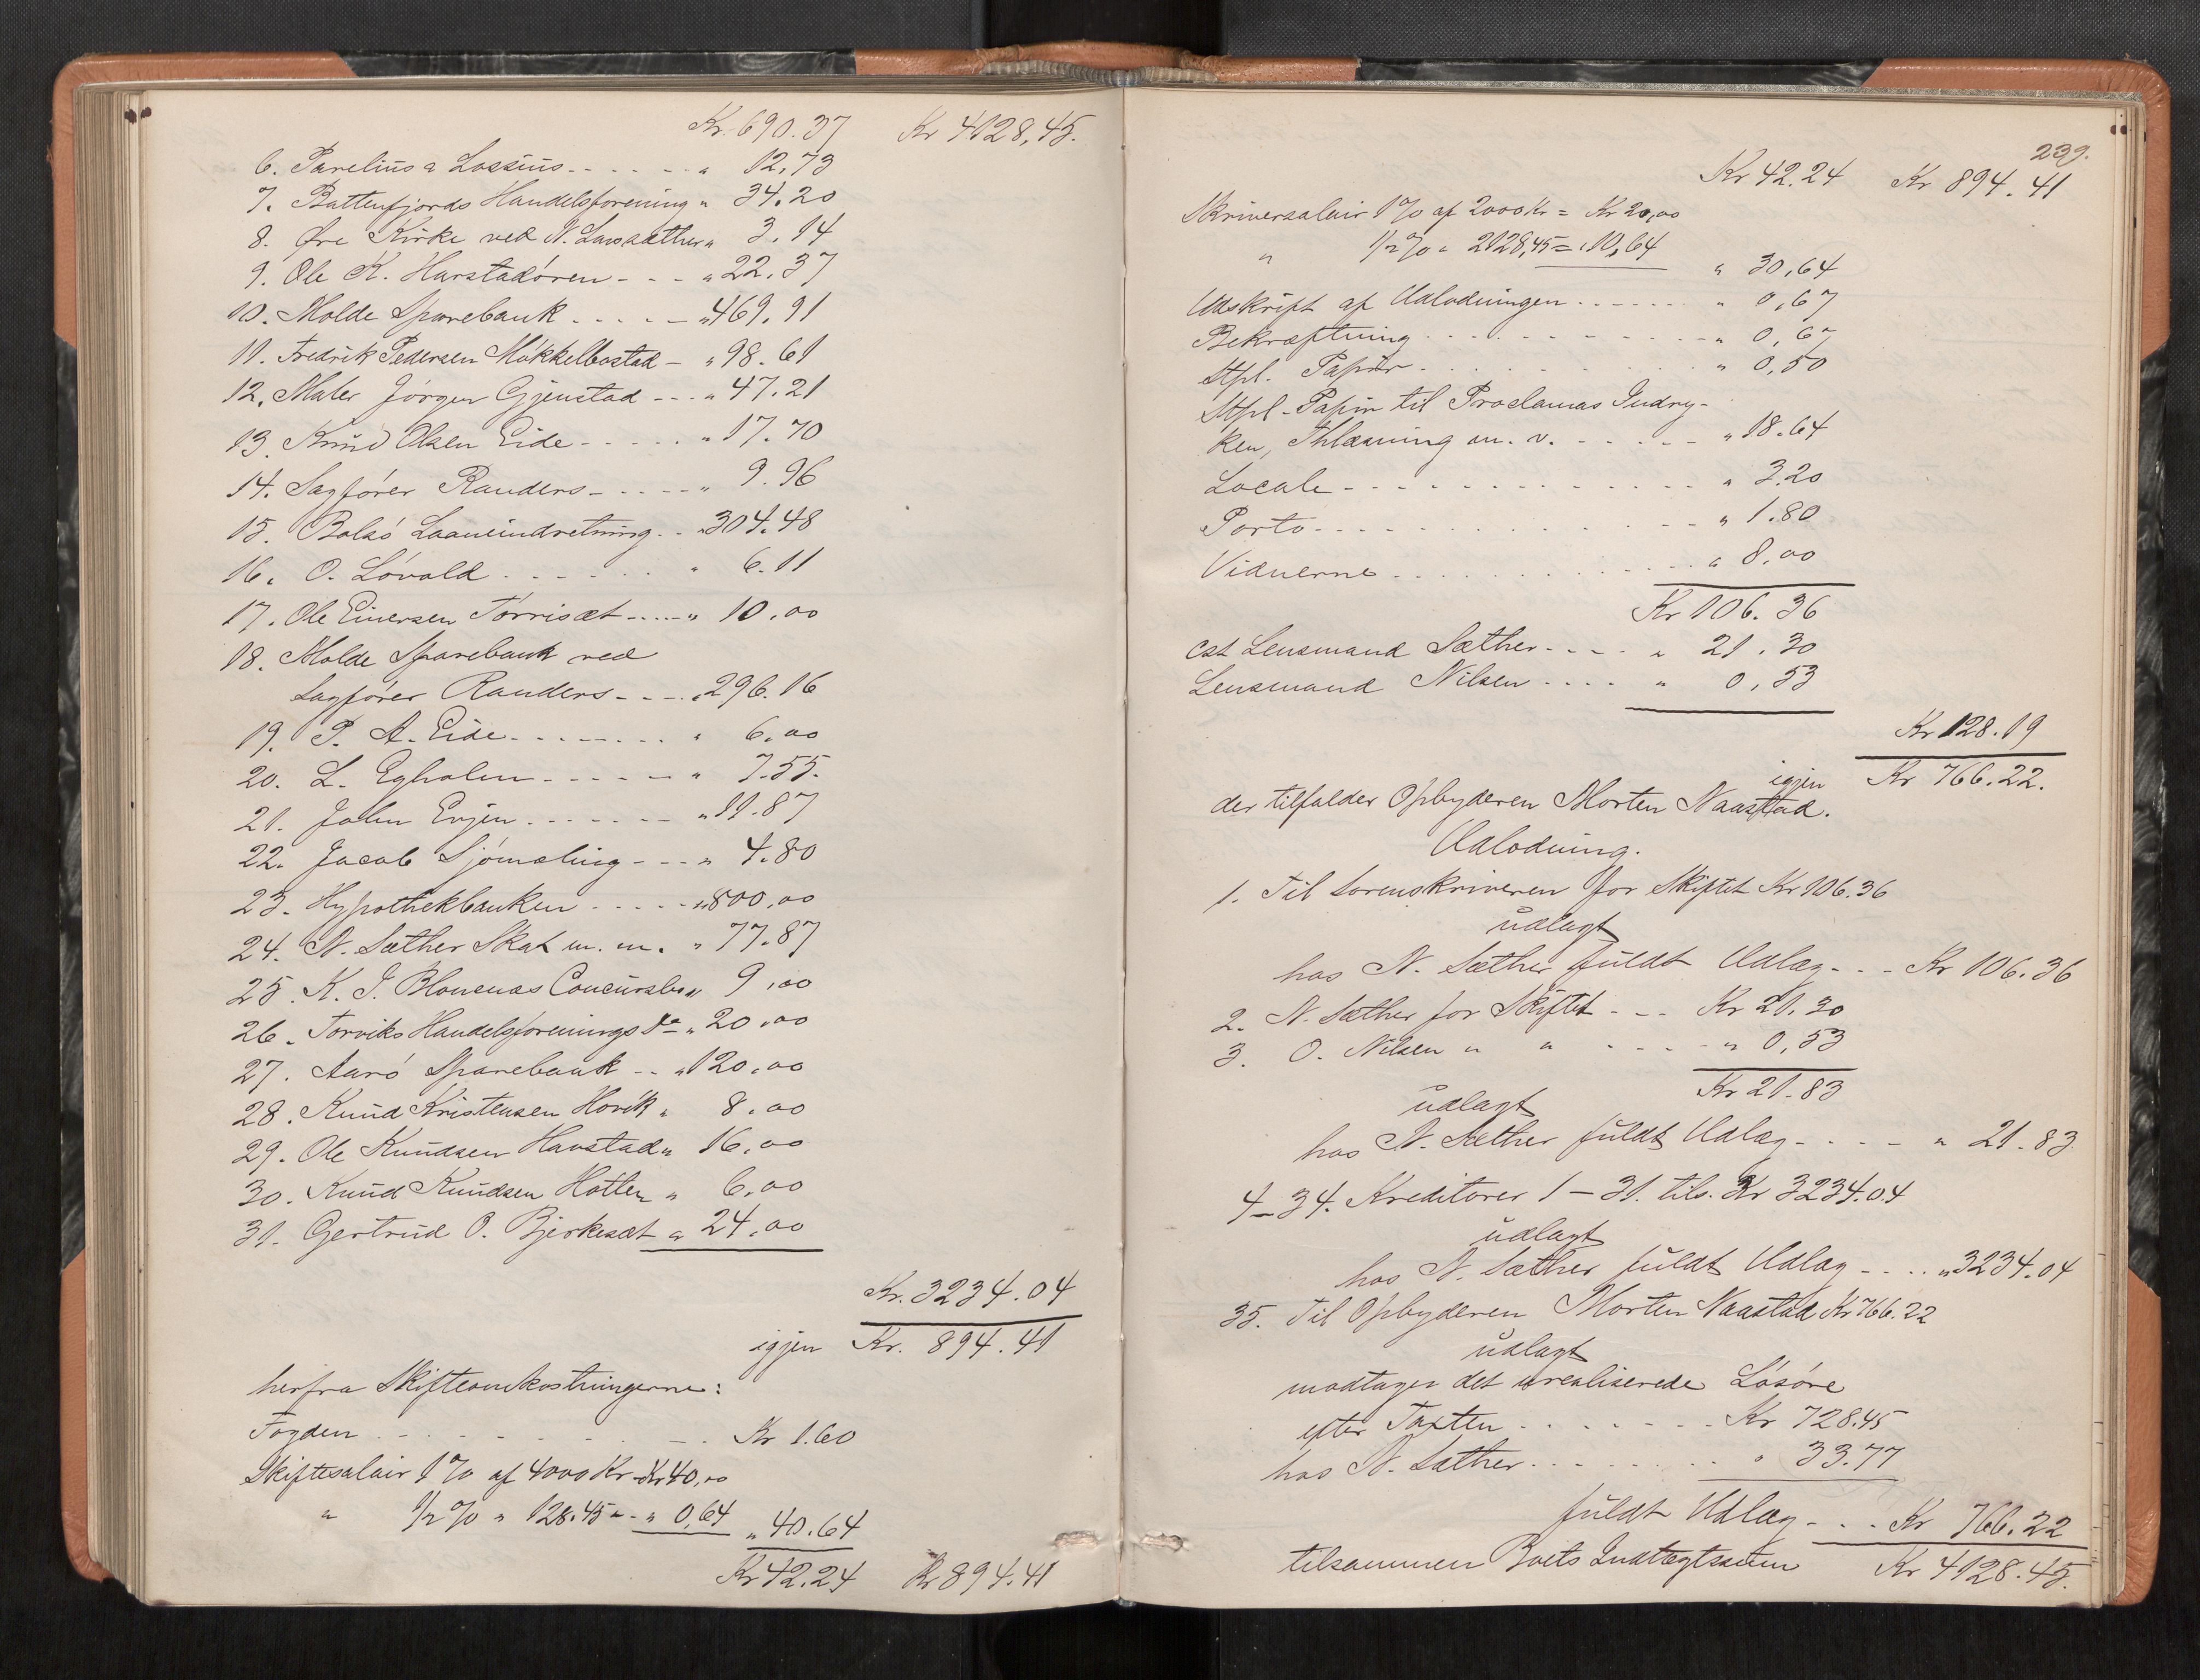 Kr. 690.37 Kr 4128,45.
6. Parelius & Lossius - - - - - „ 12,73
7. Battenfjords Handelsforening „ 34.20
8. Øre Kirke ved N. Sæther „ 3.14
9. Ole K. Harstadøren - - - „ 22.37
10. Molde Sparebank . . . . - „ 469.91
11. Fredrik Pedersen Mökkelbostad - „ 98.61
12. Maler Jörgen Gjenstad - - - „ 47.21
13. Knud Olsen Eide - - - - - . „ 17.70
14. Sagförer Randers - - - - - „ 9.96
15. Bolsö Laaneindretning . . „ 304.48
16. O. Lövold . . . . . . „ 6.11
17. Ole Einersen Torriset - - - - „ 10.00
18. Molde Sparebank ved
Sagförer Randers - - - „ 296.16
19. P. A. Eide - - - - - - - . „ 6.00
20. L. Egholm - - - - - - „ 7.55.
21. John Evjen - - - - - - - „ 11.87
22. Jacob Sjömæling - - - „ 4.80
23. Hypothekbanken . . . . - „ 800,00
24. N. Sæther Skat m. m. „ 77.87
25. K. J. Concursbo „ 9,00
26. Torviks Handelsforenings Do „ 20,00
27. Aarö Sparebank - - „ 120,00
28. Knud Kristensen Hovik „ 8,00
29. Ole Knudsen Havstad „ 16,00
30. Knud Knudsen Hotten „ 6,00
31. Gertrud O. Bjerkeset „ 24,00
Kr. 3234.04
igjen Kr. 894.41
herfra Skifteomkostningerne:
Fogden . . - - - - . - - . Kr 1.60
Skiftesalair 1% af 4000 Kr - Kr 40,00
„ ½% „ 128.45 - „ 0,64 „ 40.64
Kr 42.24 Kr 894.41
239.
Kr 42.24 Kr 894.41
Skriversalair 1% af 2000 Kr = Kr 20,00
„ ½% „ 2128,45 = „ 10,64 „ 30,64
Udskrift af Udlodningen . - - - - - „ 0,67
Bekræftning . . . . - - - - - - - „ 0,60
Stpl. Papir . . . . . . . . . „ 0,50
Stpl. Papir til Proclamas Indryk-
ken, Thlæsning m. v. - - - - - - „ 18.64
Locale - - - - - - - - - - - - - „ 3.20
Porto - - - - - - - - - - - - - „ 1.80
Vidnerne . . . . . . . . . . . „ 8,00
Kr 106.36
cst Lensmand Sæther - - - - „ 21.30
Lensmand Nilsen - - - - „ 0,53
Kr 128.19
igjen Kr 766.22.
der tilfalder Opbyderen Morten Naastad.
Udlodning.
1. Til Sorenskriveren for Skiftet Kr 106.36
udlagt
hos N. Sæther fuldt Udlæg - - - Kr 106.36
2. N. Sæther for Skiftet - - - Kr 21.30
3. O. Nilsen „ „ - - - - „ 0,53
Kr 21.83
udlagt
hos N. Sæther fuldt Udlæg - - - - - „ 21.83
4-34. Kreditorer 1-31. tils. Kr 3234.04
udlagt
hos N. Sæther fuldt Udlæg - - - - „ 3234.04
35. Til Opbyderen Morten Naastad Kr 766.22
udlagt
modtager det urealiserede Lösöre
efter Taxten . . . . . . . . Kr 728.45
hos N. Sæther . . . . . . . . „ 33.77
fuldt Udlæg - - - Kr 766.22
tilsammen Boets Indtægtssum Kr 4128.45.